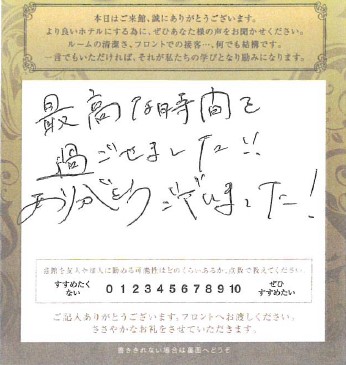 本日はご来館、誠にありがとうございます。
より良いホテルにする為に、ぜひあなた様の声をお聞かせください。
ルームの清潔さ、フロントでの接客…、何でも結構です。
一言でもいただければ、それが私たちの学びとなり励みになります。
最高な時間を
過ごせました!!
ありがとうございました!
当館を友人や知人に勧める可能性はどのくらいあるか、点数で教えてください。
すすめたくない 0 1 2 3 4 5 6 7 8 9 10 ぜひすすめたい
ご記入ありがとうございます。フロントへお渡しください。
ささやかなお礼をさせていただきます。
書ききれない場合は裏面へどうぞ